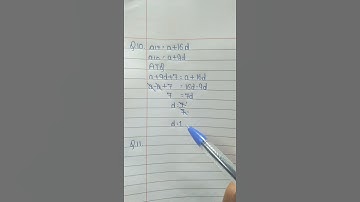 Q10. a17 = a+16d
a10 = a+9d
ATQ
a+9d+7 = a+16d
a-a+7 = 16d-9d
7 = 7d
d=7/7
d=1
Q11.